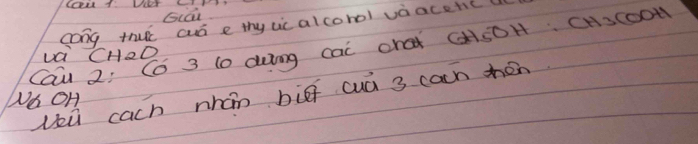 Câu 1: Viết CTPT
Giải
công thức cuả e thy lic alcohol và acetic
và CH2O
Câu 2: Có 3 lo dựng các chat C2H5OH : CH3COOH
Na OH
Nêu cách nhận biết cuả 3 cach trên